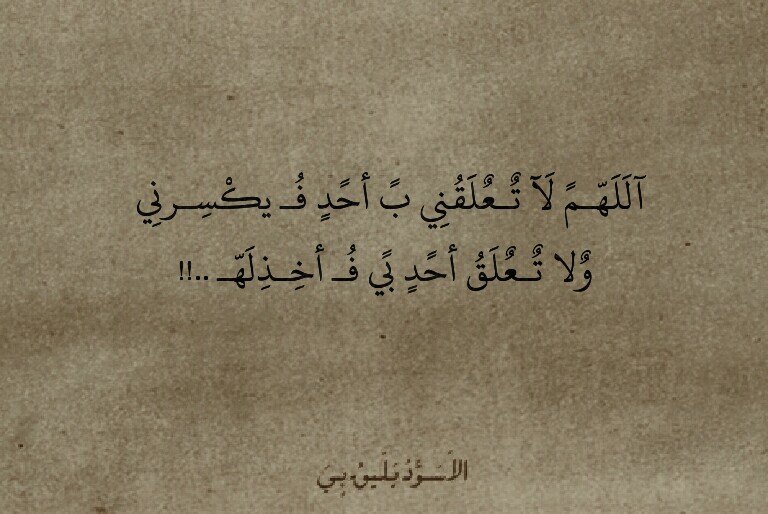 آلَلَهّـمً لَآ تٌـعٌلَقُنِي بً أحًدٍ فُـ يكْسِـرنِي
وٌلا تٌـعٌلَقُ أحًدٍ بًي فُـ أخِـذِلَهّـ ..!!
الأسَـوٌدُ يَلَيقُ بِيَ